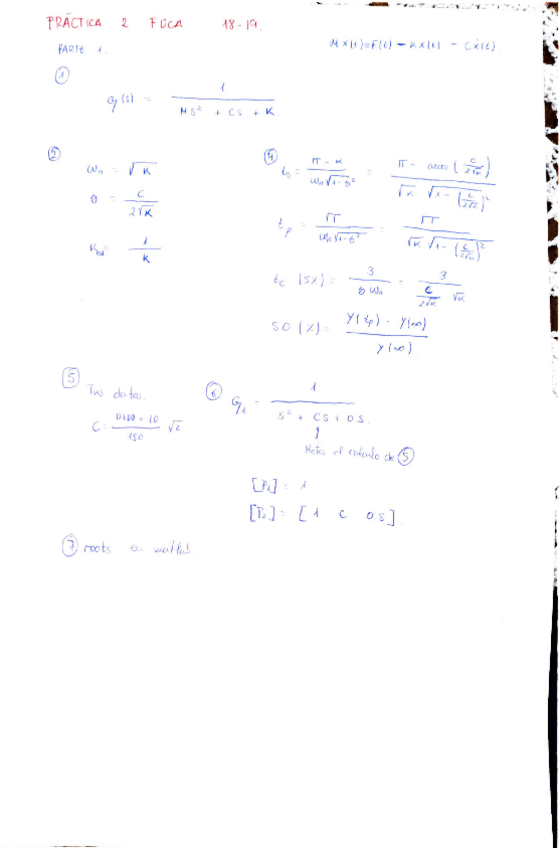 PRÁCTICA 2 FUCA 18-19.
PARTE 1.
M ẍ(t) = F(t) - K x(t) - C ẋ(t).
①
G(s) = 1 / (MS² + CS + K)
②
ωn = √K
θ = C / 2√K
= 1 / K
④
= (π - α) / (ωn √1-θ²) = (π - arcos(C / 2√K)) / (√K √1-(C / 2√K)²)
tp = π / (ωn √1-θ²) = π / (√K √1-(C / 2√K)²)
te (5%) = 3 / (θ ωn) = 3 / (C / 2√K · √K)
SO (%) = (Y(tp) - Y(∞)) / Y(∞)
⑤
Tus datos.
C = (DIDD + 10) / 150 √2
⑥
G1 = 1 / (S² + CS + 0S.
↑
el calculo de ⑤
= 1
= [1 C 0S].
⑦ roots en matlab.